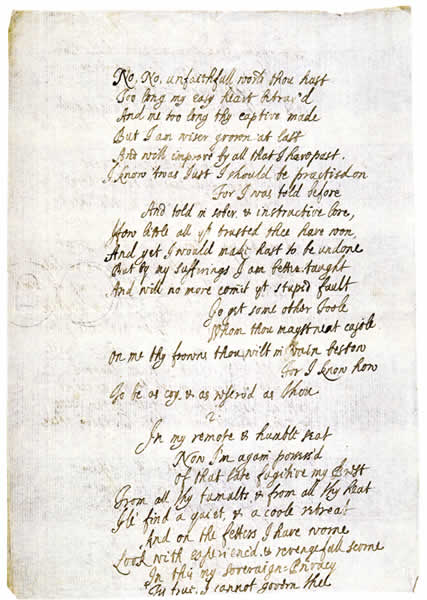 No, No, unfaithfull World thou hast
Too long my easy heart betray'd
And me too long thy captive made
But I am wiser grown at last
And will improve by all that I have past.
I know 'twas Just I should be practisd on
For I was told before
And told in sober & instructive lore,
How little all yt trusted thee have won,
And yet I would make hast to be undone
But by my suffrings I am better taught
And will no more comit yt stupid fault
Go get some other Foole
Whom thou mayst next cajole
On me thy frowns thou wilt in vain bestow
For I know how
To be as coy & as reserv'd as thou
2
In my remote & humble seat
Now I'm again possess'd
of that late fugitive my Brest
From all thy tumults & from all thy heat
I'le find a quiet & a coole retreat
And on the fetters I have worne
Look with experienc'd & revengefull scorne
In this my soveraign Privacy
'Tis true, I cannot govern thee